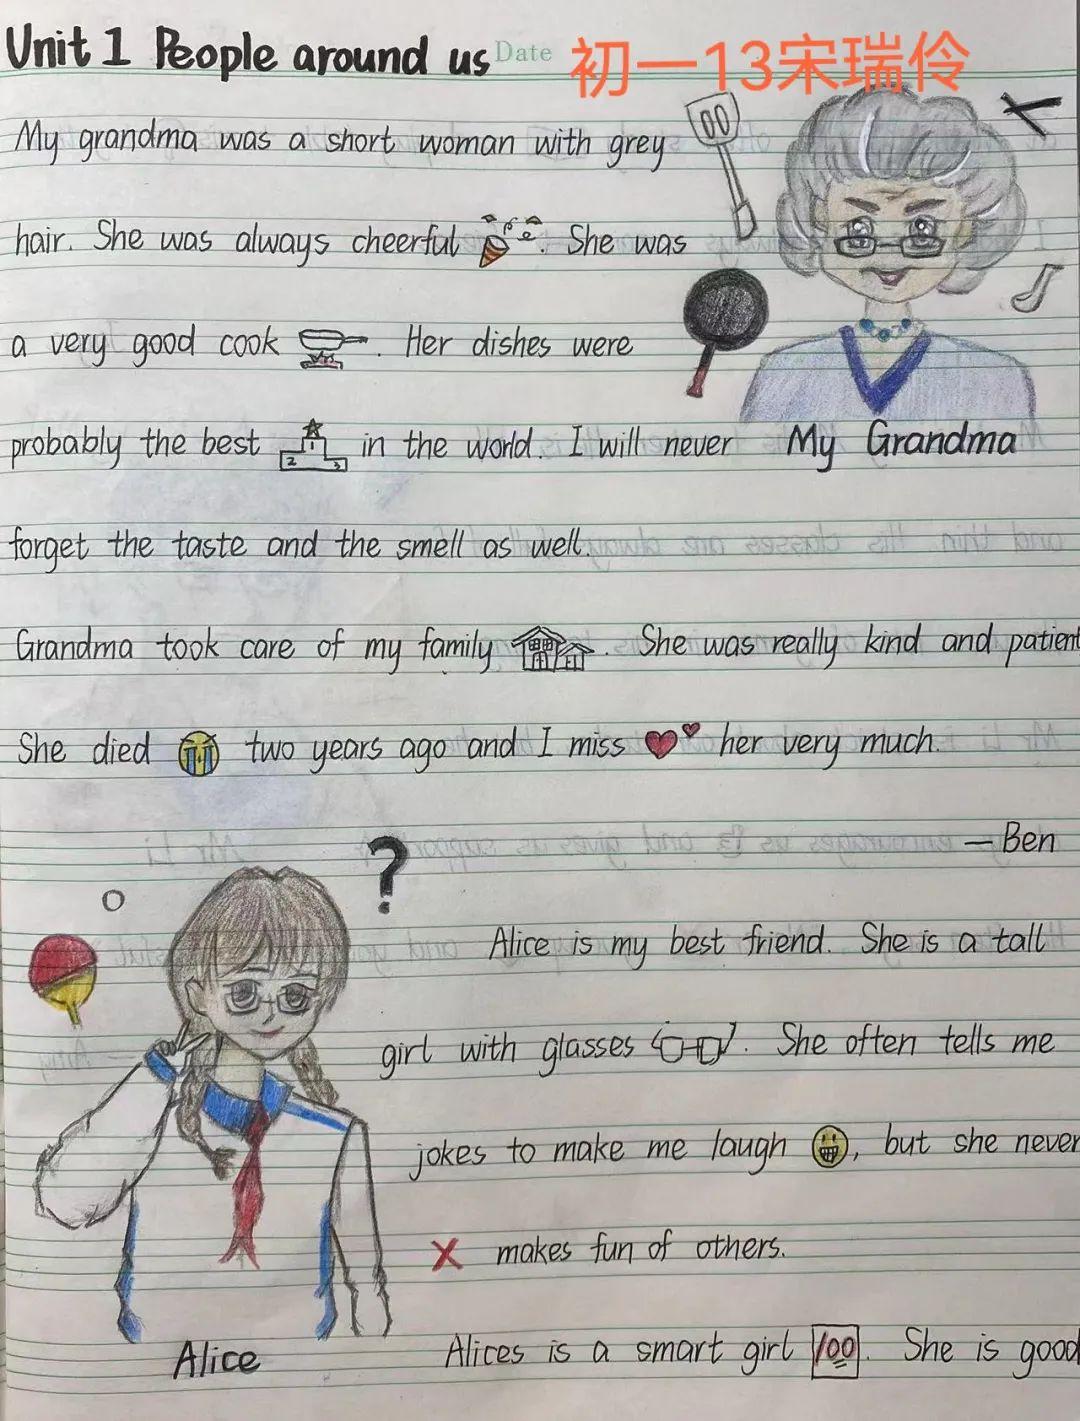 Unit 1 People around us Date 初一13宋瑞伶
My grandma was a short woman with grey
hair. She was always cheerful . She was
a very good cook . Her dishes were
probably the best in the world. I will never
My Grandma
forget the taste and the smell as well.
Grandma took care of my family . She was really kind and patient
She died two years ago and I miss her very much.
— Ben
Alice is my best friend. She is a tall
girl with glasses . She often tells me
jokes to make me laugh , but she never
makes fun of others.
Alice
Alices is a smart girl 100 . She is good